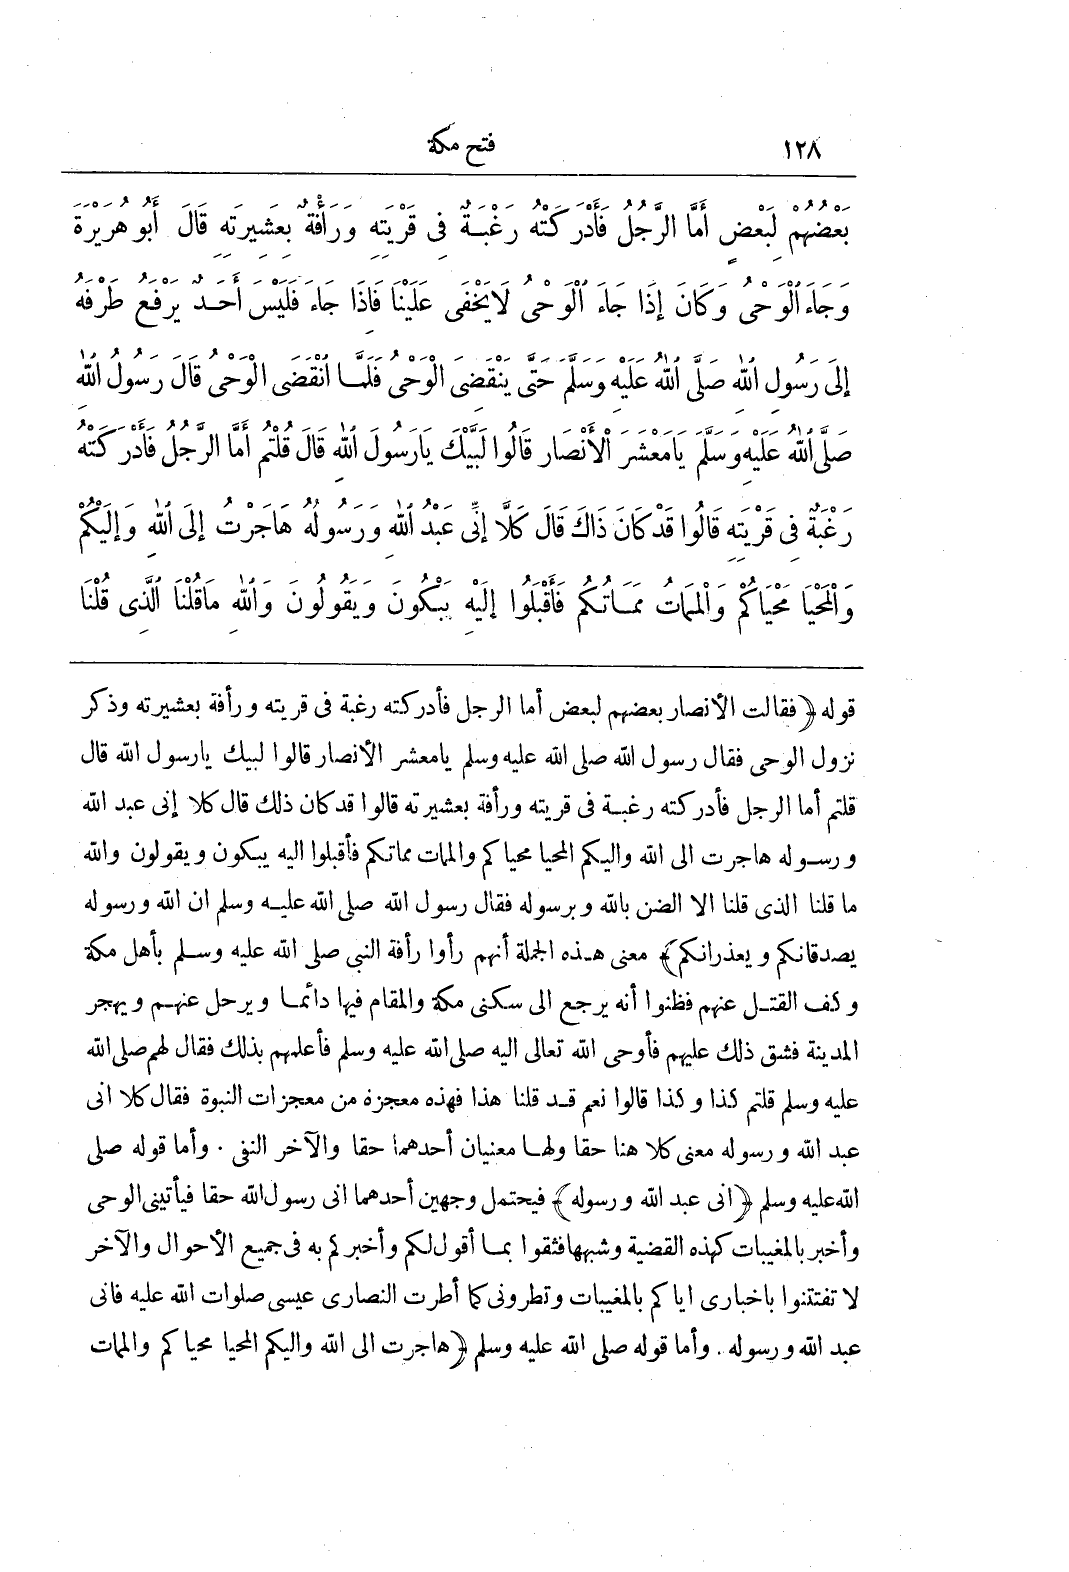 ١٢٨ فتح مكة
بَعْضُهُمْ لِبَعْضٍ أَمَّا الرَّجُلُ فَأَدْرَكَتْهُ رَغْبَةٌ فِى قَرْيَتِهِ وَرَأْفَةٌ بِعَشِيرَتِهِ قَالَ أَبُو هُرَيْرَةَ
وَجَاءَ الْوَحْىُ وَكَانَ إِذَا جَاءَ الْوَحْىُ لَا يَخْفَى عَلَيْنَا فَاذَا جَاءَ فَلَيْسَ أَحَدٌ يَرْفَعُ طَرْفَهُ
إِلَى رَسُولِ اللهِ صَلَّى اللهُ عَلَيْهِ وَسَلَّمَ حَتَّى يَنْقَضِىَ الْوَحْىُ فَلَمَّا انْقَضَى الْوَحْىُ قَالَ رَسُولُ اللهِ
صَلَّى اللهُ عَلَيْهِ وَسَلَّمَ يَامَعْشَرَ الْأَنْصَارِ قَالُوا لَبَّيْكَ يَارَسُولَ اللهِ قَالَ قُلْتُمْ أَمَّا الرَّجُلُ فَأَدْرَكَتْهُ
رَغْبَةٌ فِى قَرْيَتِهِ قَالُوا قَدْ كَانَ ذَاكَ قَالَ كَلَّا إِنِّى عَبْدُ اللهِ وَرَسُولُهُ هَاجَرْتُ إِلَى اللهِ وَإِلَيْكُمْ
وَالْمَحْيَا مَحْيَاكُمْ وَالْمَمَاتُ مَمَاتُكُمْ فَأَقْبَلُوا إِلَيْهِ يَبْكُونَ وَيَقُولُونَ وَاللهِ مَاقُلْنَا الَّذِى قُلْنَا
قوله ﴿فقالت الأنصار بعضهم لبعض أما الرجل فأدركته رغبة فى قريته ورأفة بعشيرته وذكر
نزول الوحى فقال رسول الله صلى الله عليه وسلم يامعشر الأنصار قالوا لبيك يارسول الله قال
قلتم أما الرجل فأدركته رغبة فى قريته ورأفة بعشيرته قالوا قد كان ذلك قال كلا إنى عبد الله
ورسوله هاجرت الى الله واليكم المحيا محياكم والممات مماتكم فأقبلوا اليه يبكون ويقولون والله
ما قلنا الذى قلنا الا الضن بالله وبرسوله فقال رسول الله صلى الله عليه وسلم ان الله ورسوله
يصدقانكم ويعذرانكم﴾ معنى هذه الجملة أنهم رأوا رأفة النبى صلى الله عليه وسلم بأهل مكة
وكف القتل عنهم فظنوا أنه يرجع الى سكنى مكة والمقام فيها دائما ويرحل عنهم ويهجر
المدينة فشق ذلك عليهم فأوحى الله تعالى اليه صلى الله عليه وسلم فأعلمهم بذلك فقال لهم صلى الله
عليه وسلم قلتم كذا وكذا قالوا نعم قد قلنا هذا فهذه معجزة من معجزات النبوة فقال كلا انى
عبد الله ورسوله معنى كلا هنا حقا ولها معنيان أحدهما حقا والآخر النفى . وأما قوله صلى
الله عليه وسلم ﴿انى عبد الله ورسوله﴾ فيحتمل وجهين أحدهما انى رسول الله حقا فيأتينى الوحى
وأخبر بالمغيبات كهذه القضية وشبهها فثقوا بما أقول لكم وأخبركم به فى جميع الأحوال والآخر
لا تفتتنوا باخبارى اياكم بالمغيبات وتطرونى كما أطرت النصارى عيسى صلوات الله عليه فانى
عبد الله ورسوله . وأما قوله صلى الله عليه وسلم ﴿هاجرت الى الله واليكم المحيا محياكم والممات